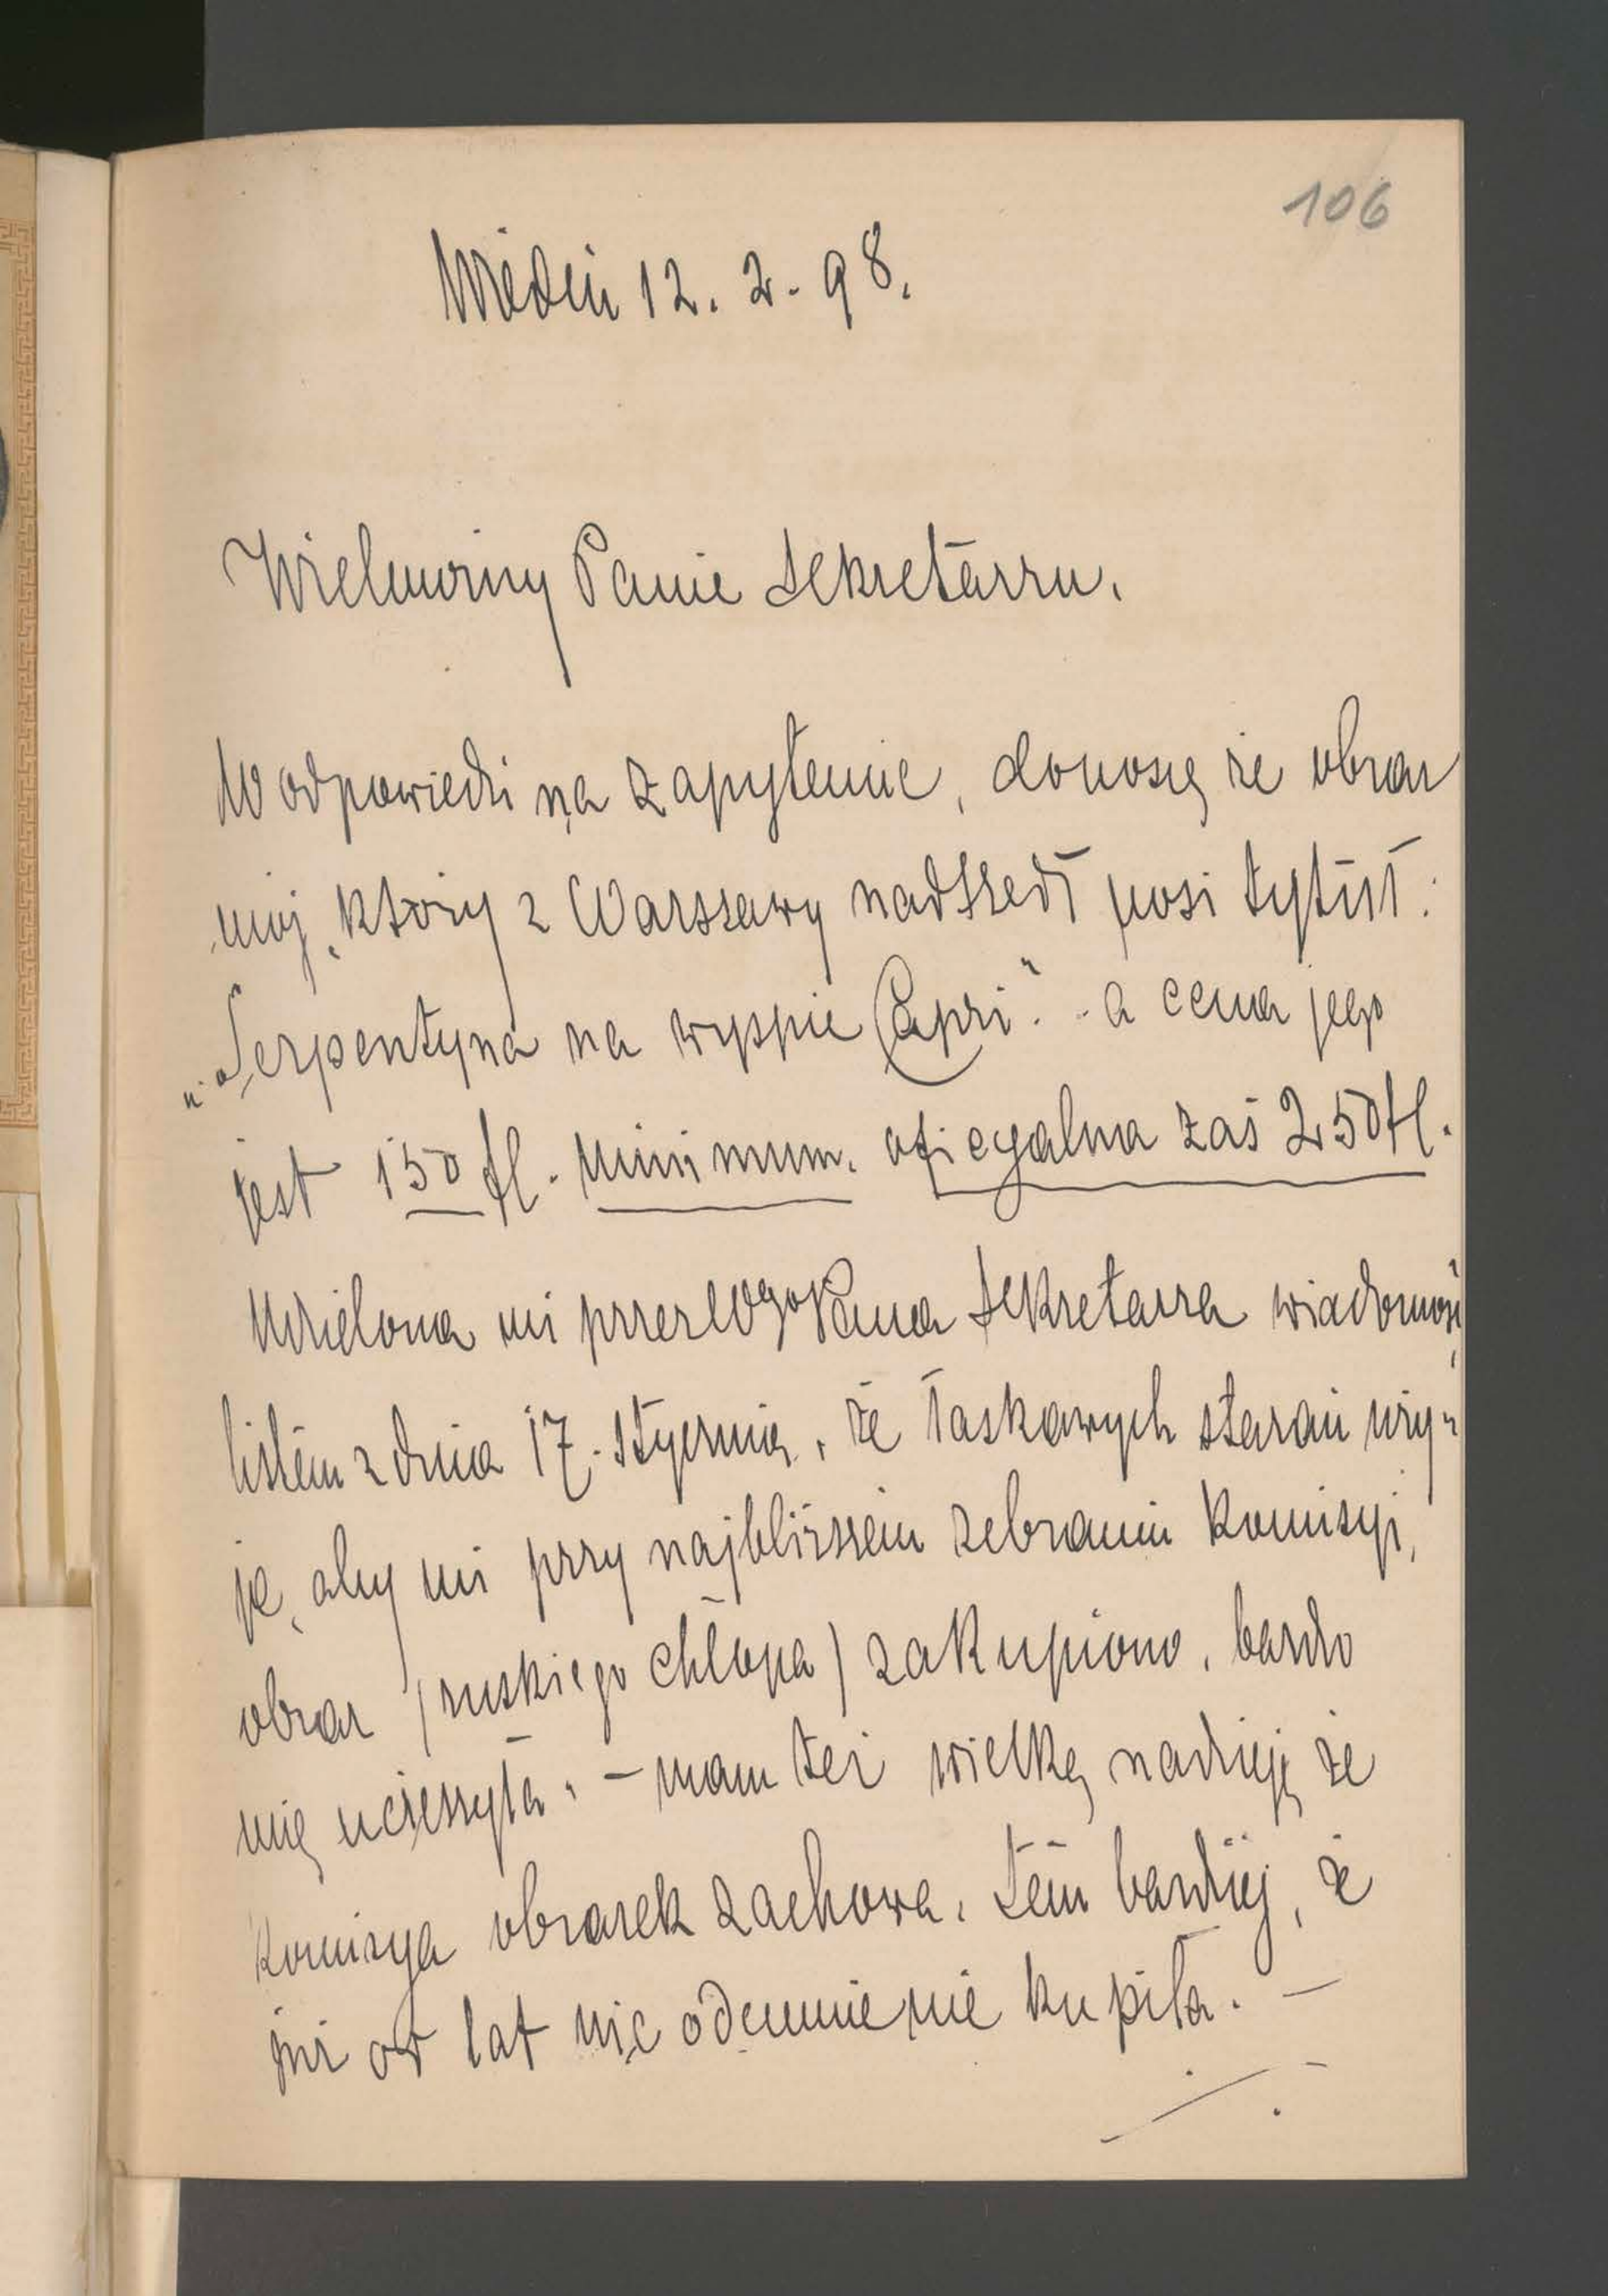 106
Wiedeń 12. 2. 98.
Wielmożny Panie Sekretarzu.
W odpowiedzi na zapytanie, donoszę że obraz
mój, który z Warszawy nadszedł nosi tytuł:
"Serpentyna na wyspie Capri". - a cena jego
jest 150 fl. minimum. oficyalna zaś 250 fl.
Udzielona mi przez Wgo Pana Sekretarza wiadomość
listem z dnia 17. stycznia, że łaskawych starań uży-
je, aby mi przy najbliższem zebraniu Komisyi,
obraz (ruskiego chłopa) zakupiono, bardzo
mię ucieszyła. – mam też wielką nadzieję że
Komisya obrazek zachowa. tém bardziéj, że
już od lat nic odemnie nie kupiła. –